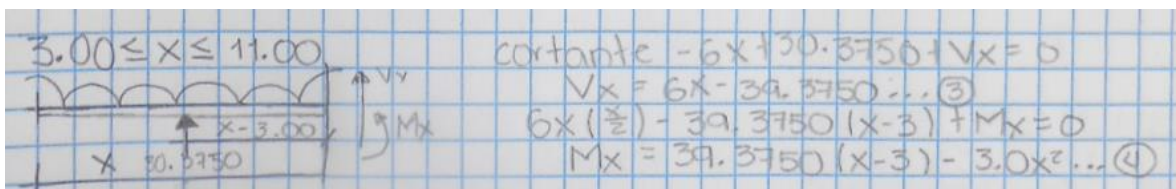 3.00 ≤ x ≤ 11.00
Vx
Mx
x-3.00
x
30.3750
cortante -6x+30.3750+Vx=0
Vx = 6x-39.3750... ③
6x(x/2) - 39.3750(x-3)+Mx=0
Mx = 39.3750(x-3) - 3.0x²... ④